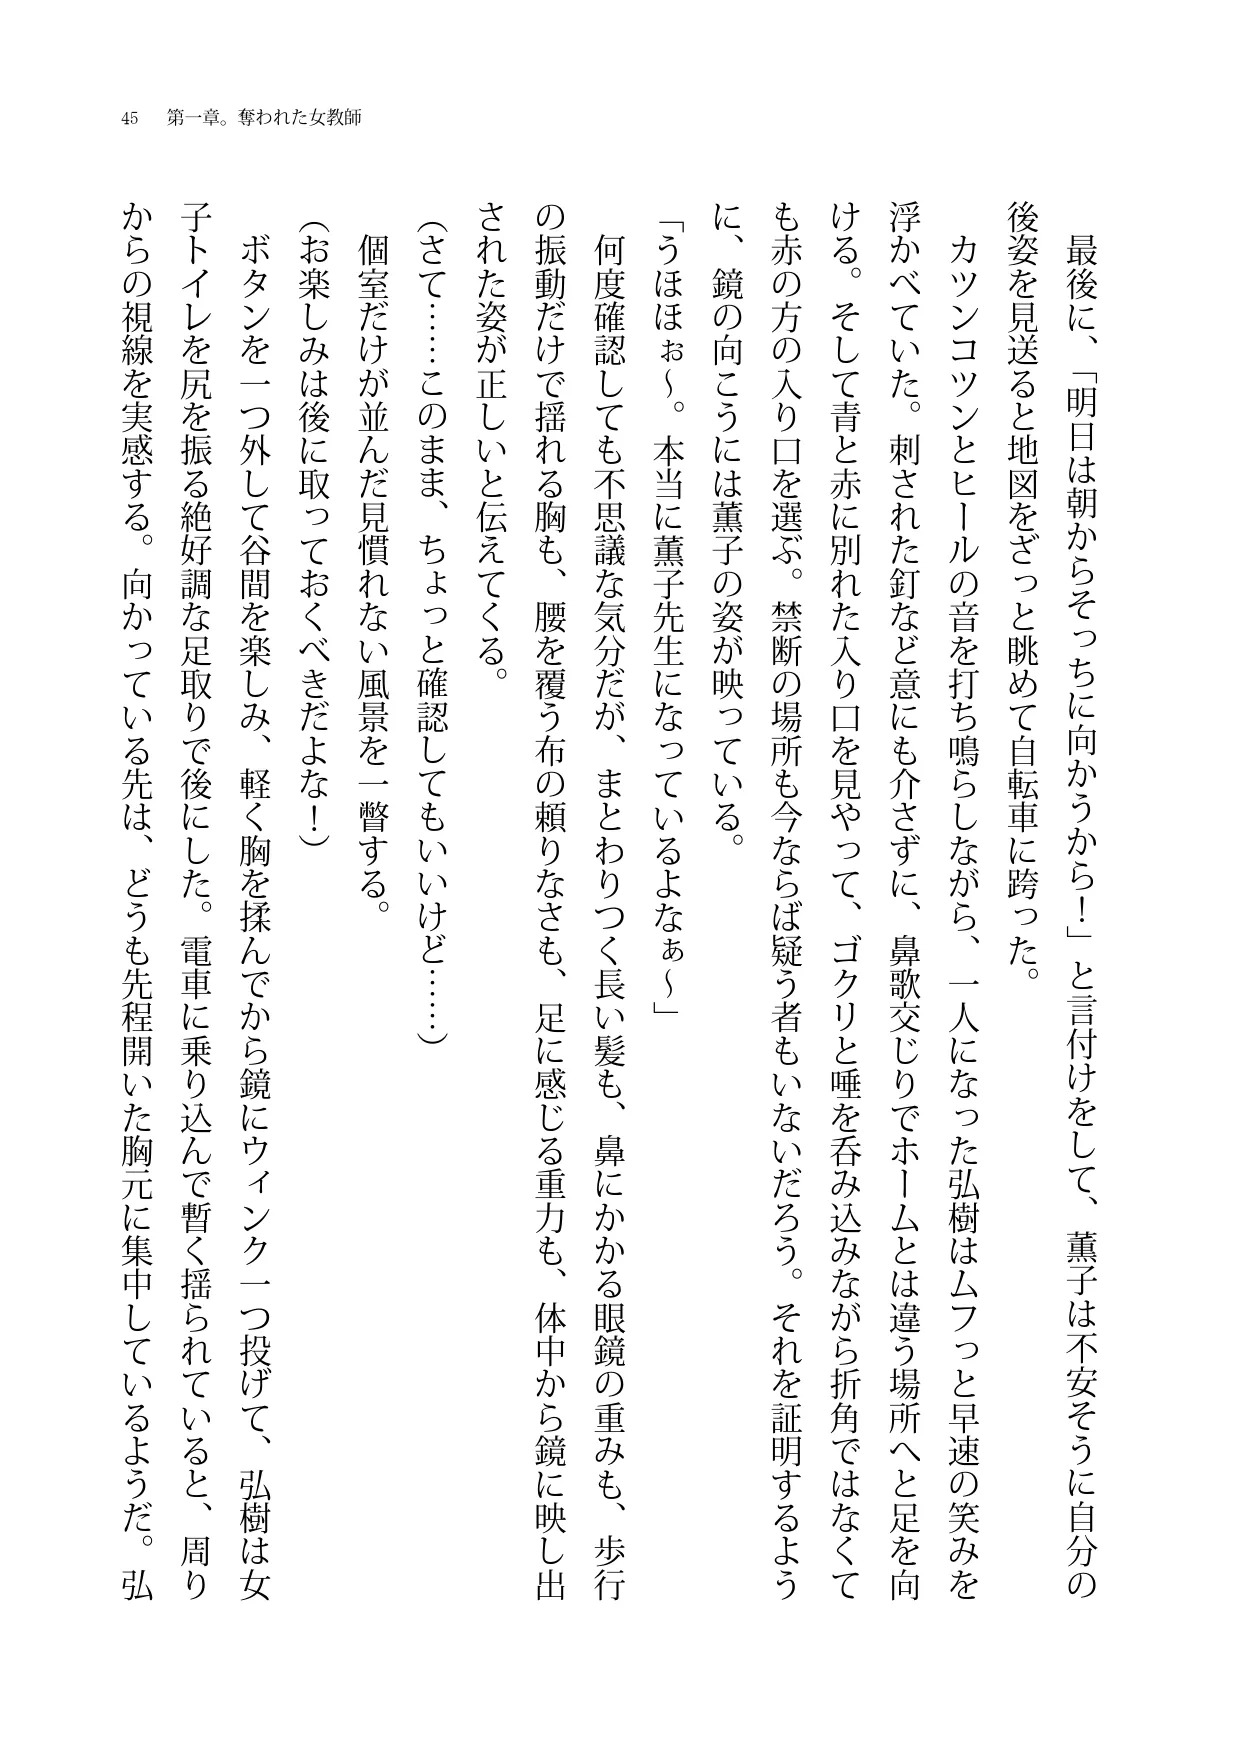 45　第一章。奪われた女教師
　最後に、「明日は朝からそっちに向かうから！」と言付けをして、薫子は不安そうに自分の
後姿を見送ると地図をざっと眺めて自転車に跨った。
　カツンコツンとヒールの音を打ち鳴らしながら、一人になった弘樹はムフっと早速の笑みを
浮かべていた。刺された釘など意にも介さずに、鼻歌交じりでホームとは違う場所へと足を向
ける。そして青と赤に別れた入り口を見やって、ゴクリと唾を呑み込みながら折角ではなくて
も赤の方の入り口を選ぶ。禁断の場所も今ならば疑う者もいないだろう。それを証明するよう
に、鏡の向こうには薫子の姿が映っている。
「うほほぉ～。本当に薫子先生になっているよなぁ～」
　何度確認しても不思議な気分だが、まとわりつく長い髪も、鼻にかかる眼鏡の重みも、歩行
の振動だけで揺れる胸も、腰を覆う布の頼りなさも、足に感じる重力も、体中から鏡に映し出
された姿が正しいと伝えてくる。
（さて……このまま、ちょっと確認してもいいけど……）
　個室だけが並んだ見慣れない風景を一瞥する。
（お楽しみは後に取っておくべきだよな！）
　ボタンを一つ外して谷間を楽しみ、軽く胸を揉んでから鏡にウィンク一つ投げて、弘樹は女
子トイレを尻を振る絶好調な足取りで後にした。電車に乗り込んで暫く揺られていると、周り
からの視線を実感する。向かっている先は、どうも先程開いた胸元に集中しているようだ。弘